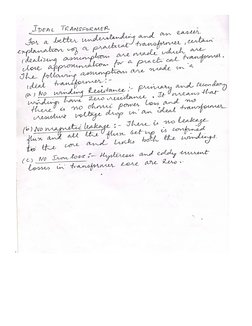 IDEAL TRANSFORMER
For a better understanding and an easier
explanation of a practical transformer, certain
idealising assumption are made which are
close approximation for a practical transformer.
The following assumption are made in a
ideal transformer:-
(a) No winding Resistance:- primary and secondary
winding have zero resistance. It means that
there is no ohmic power loss and no
resistive voltage drop in an ideal transformer
(b) No magnetic leakage:- There is no leakage
flux and all the flux set up is confined
to the core and links both the windings.
(c) No Iron loss:- Hysteresis and eddy current
losses in transformer core are zero.